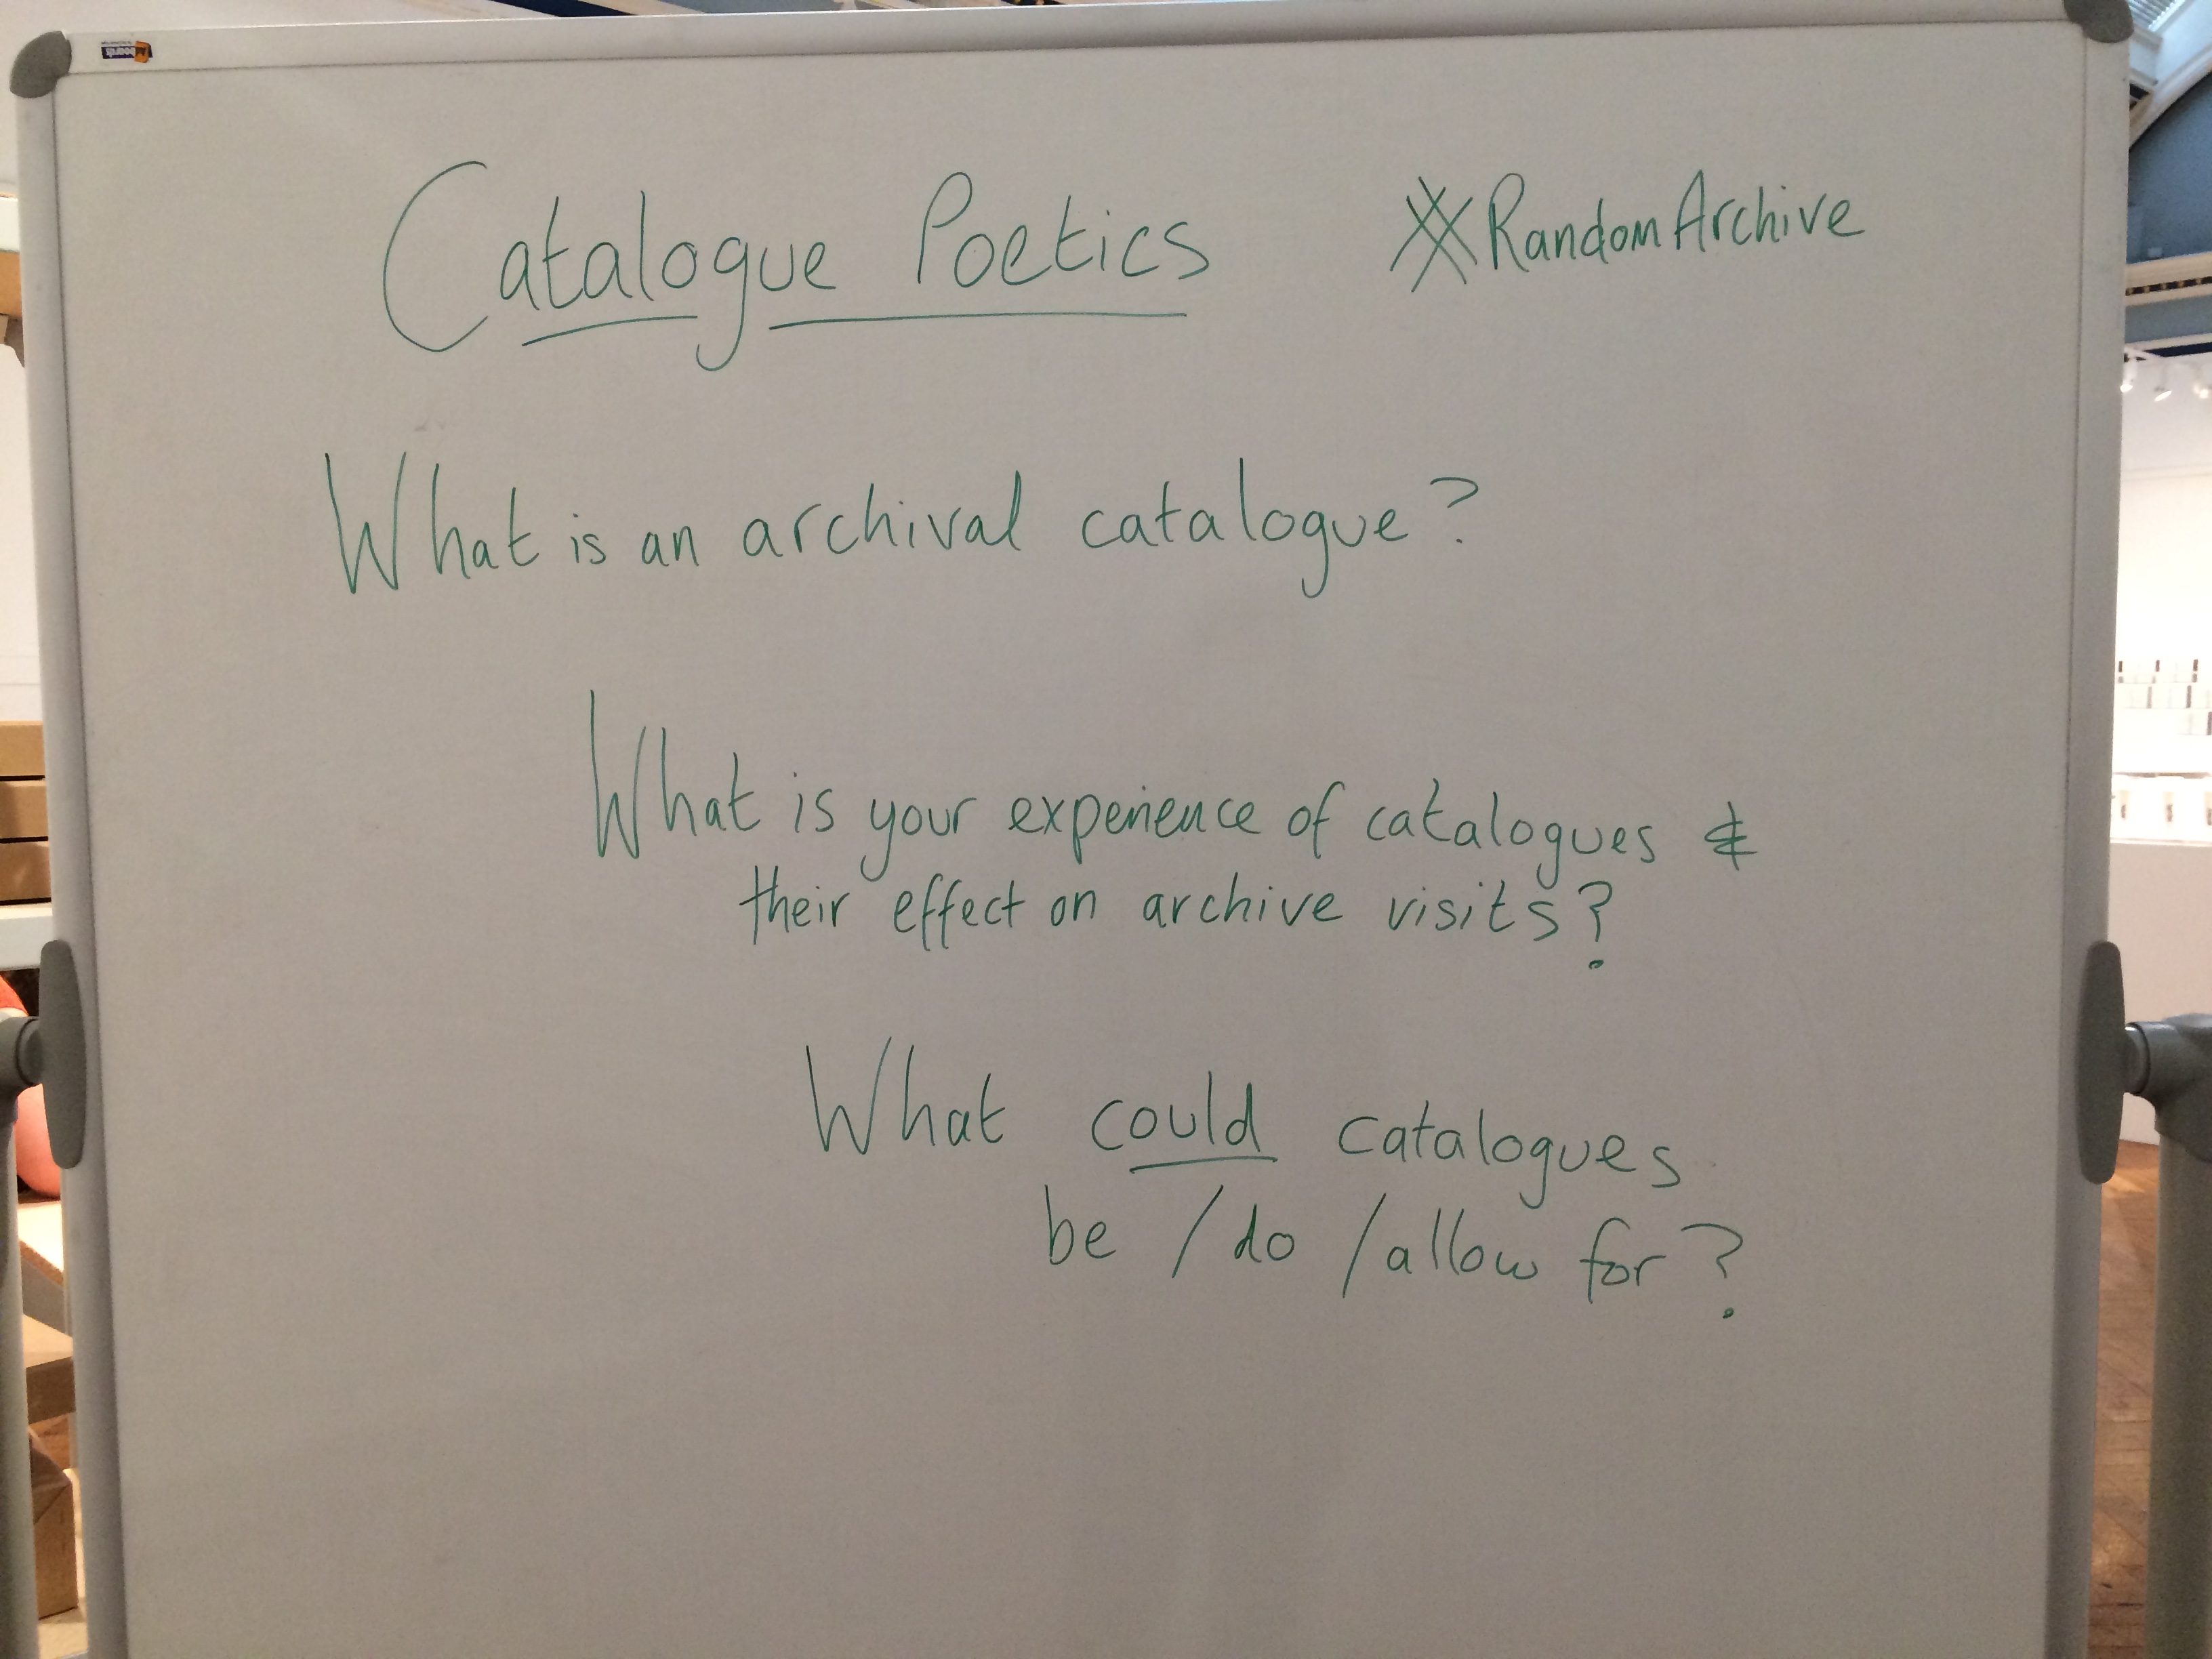 Catalogue Poetics #RandomArchive
What is an archival catalogue?
What is your experience of catalogues &
their effect on archive visits?
What could catalogues
be / do / allow for?